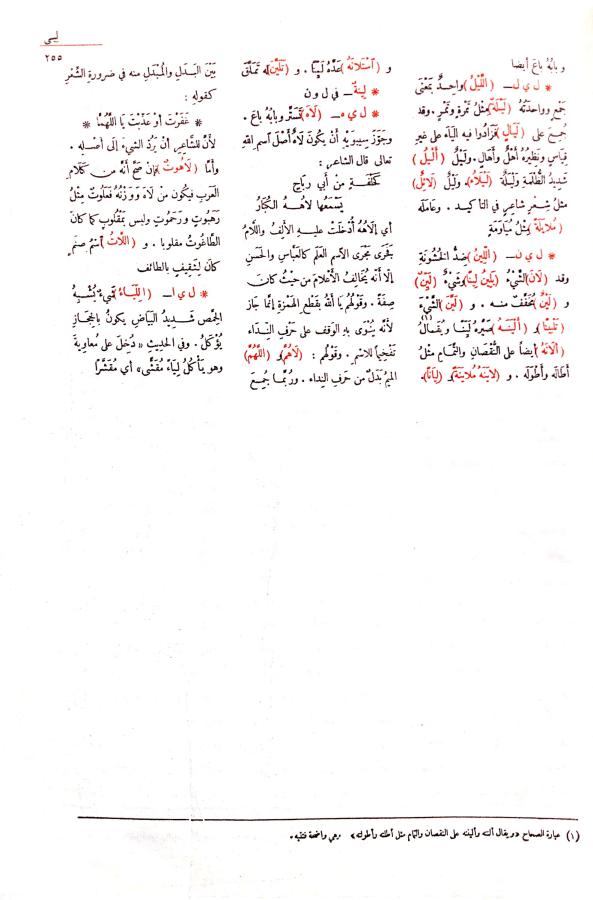 ليى
٢٥٥
وبابُهُ باعَ أيضا
* ل ي ل ــ (اللَّيْلُ) واحِدٌ بمَعْنَى
جَمْعٍ وواحِدَتُهُ (لَيْلَةٌ) مِثْلُ تَمْرَةٍ وتَمْرٍ. وقد
جُمِعَ على (لَيَالٍ) فَزَادُوا فيه الياءَ على غيرِ
قِيَاسٍ ونَظِيرُهُ أَهْلٌ وأَهَالٍ. ولَيْلٌ (أَلْيَلُ)
شَدِيدُ الظُّلْمَةِ ولَيْلَةٌ (لَيْلَاءُ) ولَيْلٌ (لَائِلٌ)
مثلُ شِعْرٍ شاعِرٍ في التأكيد. وعَامَلَهُ
(مُلَايَلَةً) مِثْلُ مُيَاوَمَةٍ
* ل ي ن ــ (اللِّينُ) ضِدُّ الخُشُونَةِ
وقد (لَانَ) الشَّيْءُ (يَلِينُ لِينًا) وشَيْءٌ (لَيِّنٌ)
و (لَيْنٌ) مُخَفَّفٌ منه. و (لَيَّنَ) الشَّيْءَ
(تَلْيِينًا) و (أَلْيَنَهُ) صَيَّرَهُ لَيِّنًا ويُقَالُ (١)
(أَلَانَهُ) أيضاً على النُّقْصَانِ والتَّمَامِ مثلُ
أَطَالَهُ وأَطْوَلَهُ. و (لَايَنَهُ مُلَايَنَةً) و (لِيَانًا).
و (اسْتَلَانَهُ) عَدَّهُ لَيِّنًا. و (تَلَيَّنَ) له تَمَلَّقَ
* لِينَةٌ ــ في ل و ن
* ل ي ه ــ (لَاهَ) تَسَتَّرَ وبابُهُ باعَ.
وجَوَّزَ سيبويهِ أَنْ يكُونَ لاهٌ أَصْلَ اسمِ اللهِ
تعالى قال الشاعر:
كَحَلْفَةٍ مِنْ أبي رِيَاحٍ
يَسْمَعُها لاهُهُ الكُبَارُ
أي إلَاهُهُ أُدْخِلَتْ عليهِ الأَلِفُ واللَّامُ
فَجَرَى مَجْرَى الاسمِ العَلَمِ كالعَبَّاسِ والحَسَنِ
إلّا أنَّه يُخَالِفُ الأَعْلامَ من حيْثُ كان
صِفَةً. وقولُهُم يا أَللهُ بقَطْعِ الهَمْزَةِ إنَّما جَازَ
لأنَّه يُنْوَى به الوَقْفُ على حَرْفِ النِّداءِ
تَفْخِيمًا للاسمِ. وقولُهُم: (لاهُمَّ) و (اللّهُمَّ)
الميمُ بَدَلٌ من حَرْفِ النِداء. ورُبَّما جُمِعَ
بَيْنَ البَدَلِ والمُبْدَلِ منه في ضرورةِ الشِّعْرِ
كقوله:
* غَفَرْتَ أوْ عَذَّبْتَ يَا اللّهُمَّا *
لأنَّ للشاعِرِ أنْ يَرُدَّ الشيءَ إلى أصْلِه.
وأمَّا (لَاهُوتُ) فإنْ صَحَّ أنَّه من كلامِ
العرَبِ فيكون من لَاهَ ووَزْنُهُ فَعَلُوتٌ مِثْلُ
رَهَبُوتٍ ورَحَمُوتٍ وليس بمَقْلُوبٍ كما كان
الطَّاغُوتُ مقلوبا. و (اللَّاتُ) اسْمُ صَنَمٍ
كانَ لِثَقِيفٍ بالطائف
* ل ي ا ــ (اللِّيَاءُ) شيءٌ يُشْبِهُ
الحِمَّصَ شَدِيدُ البَيَاضِ يكونُ بالحِجَازِ
يُؤْكَلُ. وفي الحديثِ «دُخِلَ على مُعاوِيةَ
وهو يأكُلُ لِيَاءً مُقَشًّى» أي مُقَشَّرًا
(١) عبارة الصحاح «ويقال ألنته وألينته على النقصان والتمام مثل أطلته وأطولته» وهي واضحة فتنبه.